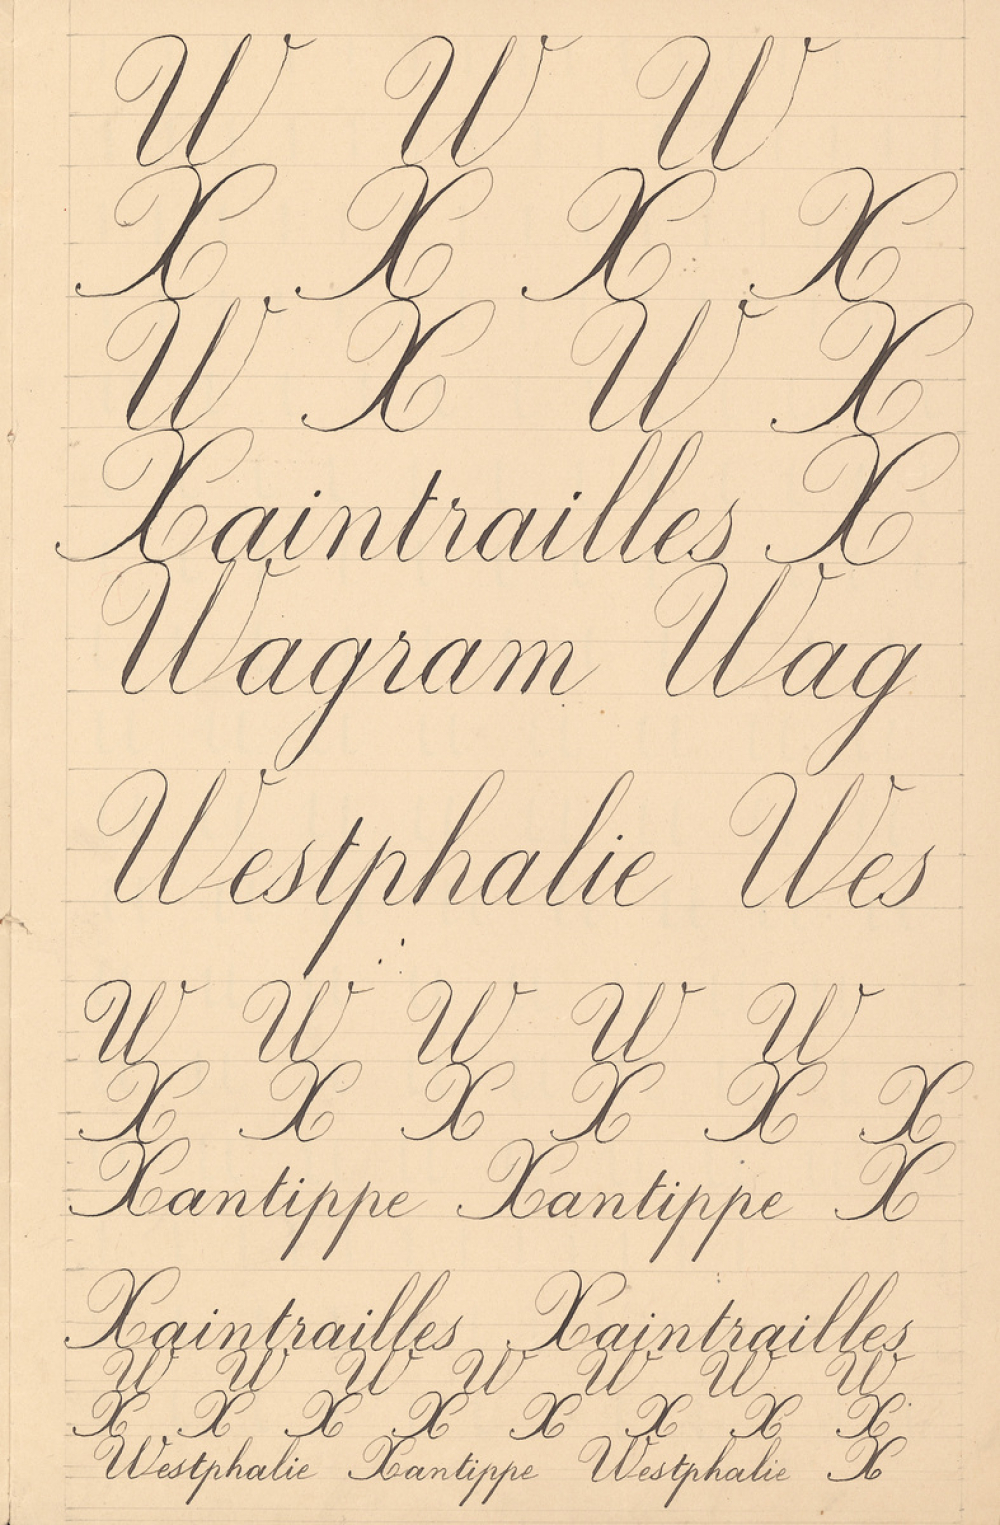 W W W
X X X X
W X W X
Xaintrailles X
Wagram Wag
Westphalie Wes
W W W W W
X X X X X X
Xantippe Xantippe X
Xaintrailles Xaintrailles
W W W W W W W
X X X X X X X X
Westphalie Xantippe Westphalie X